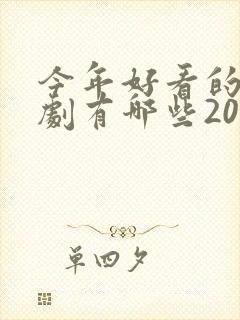 今年好看的
劇有哪些20
单四夕